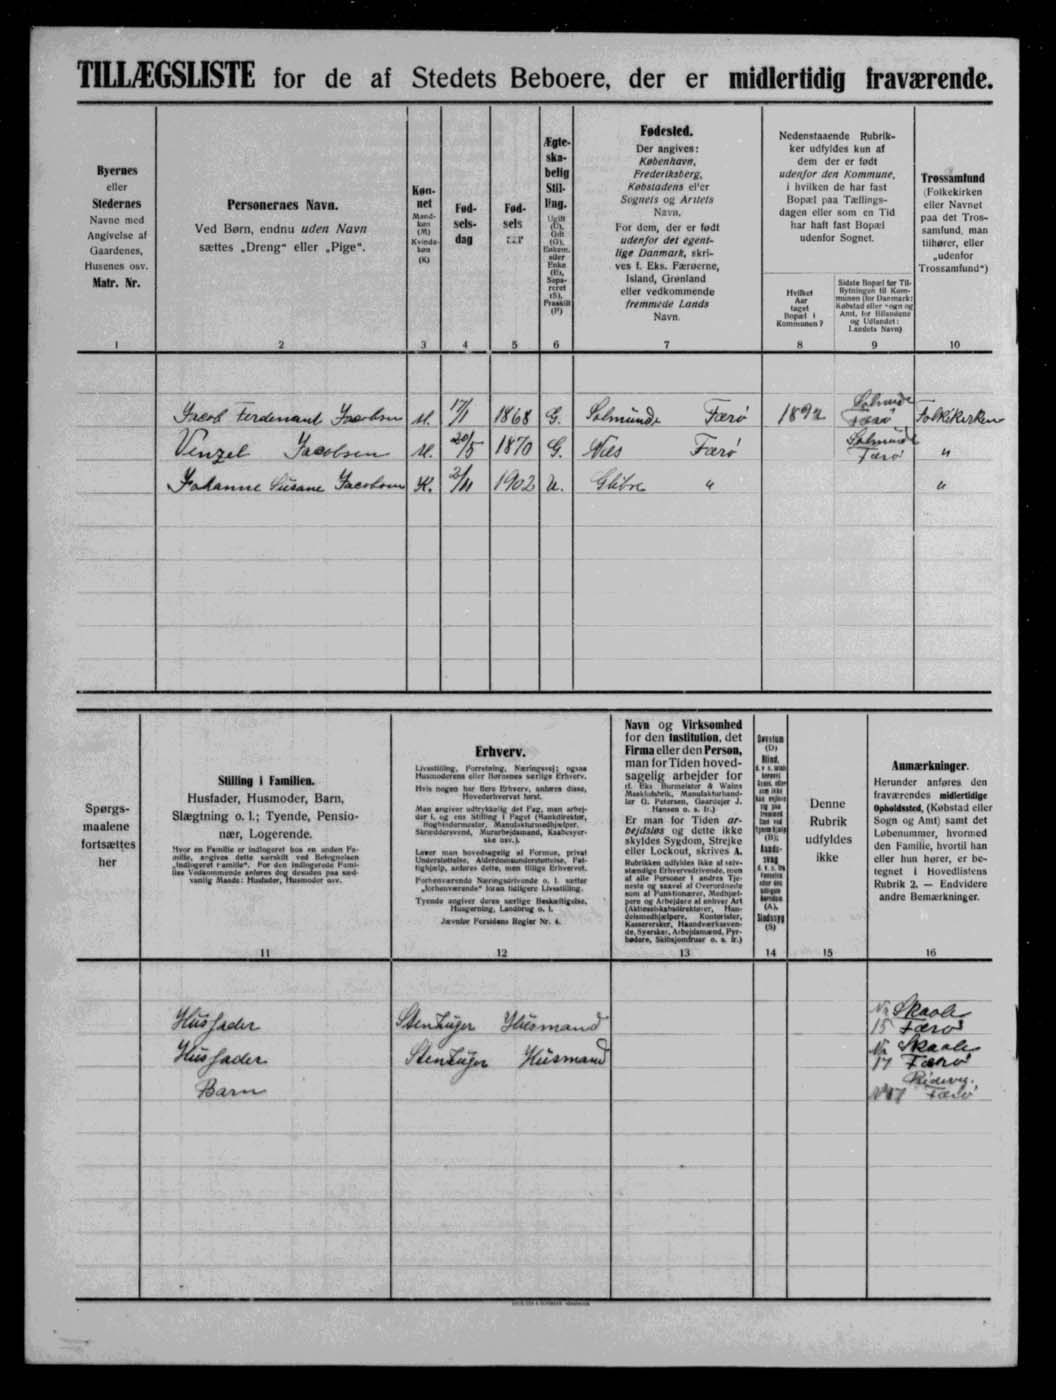 TILLÆGSLISTE for de af Stedets Beboere, der er midlertidig fraværende.
Byernes
eller
Stedernes
Navne med
Angivelse af
Gaardenes,
Husenes osv.
Matr. Nr.
1
Personernes Navn.
Ved Børn, endnu uden Navn
sættes „Dreng“ eller „Pige“.
2
Køn-
net
Mand-
køn
(M)
Kvinde-
køn
(K)
3
Fød-
sels-
dag
4
Fød-
sels
aar
5
Ægte-
ska-
belig
Stil-
ling.
Ugift
(U),
Gift
(G),
Enkem.
eller
Enke
(E),
Sepa-
reret
(S),
Fraskilt
(F)
6
Fødested.
Der angives:
København,
Frederiksberg,
Købstadens eller
Sognets og Amtets
Navn.
For dem, der er født
udenfor det egent-
lige Danmark, skri-
ves f. Eks. Færøerne,
Island, Grønland
eller vedkommende
fremmede Lands
Navn.
7
Nedenstaaende Rubrik-
ker udfyldes kun af
dem der er født
udenfor den Kommune,
i hvilken de har fast
Bopæl paa Tællings-
dagen eller som en Tid
har haft fast Bopæl
udenfor Sognet.
Hvilket
Aar
taget
Bopæl i
Kommunen?
8
Sidste Bopæl før Til-
flytningen til Kom-
munen (for Danmark:
Købstad eller Sogn og
Amt, for Bilandene
og Udlandet:
Landets Navn)
9
Trossamfund
(Folkekirken
eller Navnet
paa det Tros-
samfund, man
tilhører, eller
„udenfor
Trossamfund“)
10
Jacob Ferdenant Jacobsen M. 17/1 1868 G. Solmunde Færø 1892 Solmunde Færø Folkekirken
Venzel Jacobsen M. 20/5 1870 G. Næs Færø Solmunde Færø "
Johanne Susane Jacobsen K. 2/11 1902 U. Glibre " "
Spørgs-
maalene
fortsættes
her
Stilling i Familien.
Husfader, Husmoder, Barn,
Slægtning o. l.; Tyende, Pensio-
nær, Logerende.
Hvor en Familie er indlogeret hos en anden Fa-
milie, angives dette særskilt ved Betegnelsen
„Indlogeret Familie“. For den indlogerede Fami-
lies Vedkommende anføres dog desuden paa sæd-
vanlig Maade: Husfader, Husmoder osv.
11
Erhverv.
Livsstilling, Forretning, Næringsvej; ogsaa
Husmoderens eller Børnenes særlige Erhverv.
Hvis nogen har flere Erhverv, anføres disse,
Hovederhvervet først.
Man angiver udtrykkelig det Fag, man arbej-
der i, og ens Stilling i Faget (Bankdirektør,
Bogbindermester, Manufakturmedhjælper,
Skræddersvend, Murarbejdsmand, Kaabesyer-
ske osv.).
Lever man hovedsagelig af Formue, privat
Understøttelse, Alderdomsunderstøttelse, Fat-
tighjælp, anføres dette, men tillige Erhvervet.
Forhenværende Næringsdrivende o. l. sætter
„forhenværende“ foran tidligere Livsstilling.
Tyende angiver deres særlige Beskæftigelse,
Husgerning, Landbrug o. l.
Jævnfør Forsidens Regler Nr. 4.
12
Navn og Virksomhed
for den Institution, det
Firma eller den Person,
man for Tiden hoved-
sagelig arbejder for
(f. Eks. Burmeister & Wains
Maskinfabrik, Manufakturhand-
ler G. Petersen, Gaardejer J.
Hansen o. s. fr.)
Er man for Tiden ar-
bejdsløs og dette ikke
skyldes Sygdom, Strejke
eller Lockout, skrives A.
Rubrikken udfyldes ikke af selv-
stændige Erhvervsdrivende, men
af alle Personer i andres Tje-
neste og saavel af Overordnede
som af Funktionærer, Medhjæl-
pere og Arbejdere af enhver Art
(Aktieselskabsdirektører, Han-
delsmedhjælpere, Kontorister,
Kassererske, Haandværkssven-
de, Syersker, Arbejdsmænd, Pyr-
bødere, Skibsjomfruer o. s. fr.)
13
Døvstum
(D)
Blind,
(B);
Aands-
svag
(A),
Sindssyg
(S)
14
Denne
Rubrik
udfyldes
ikke
15
Anmærkninger.
Herunder anføres den
fraværendes midlertidige
Opholdssted, (Købstad eller
Sogn og Amt) samt det
Løbenummer, hvormed
den Familie, hvortil han
eller hun hører, er be-
tegnet i Hovedlistens
Rubrik 2. — Endvidere
andre Bemærkninger.
16
Husfader Stenhuger Husmand Nr 15 Skaale Færø
Husfader Stenhuger Husmand Nr 17 Skaale Færø
Barn No 17 Færø